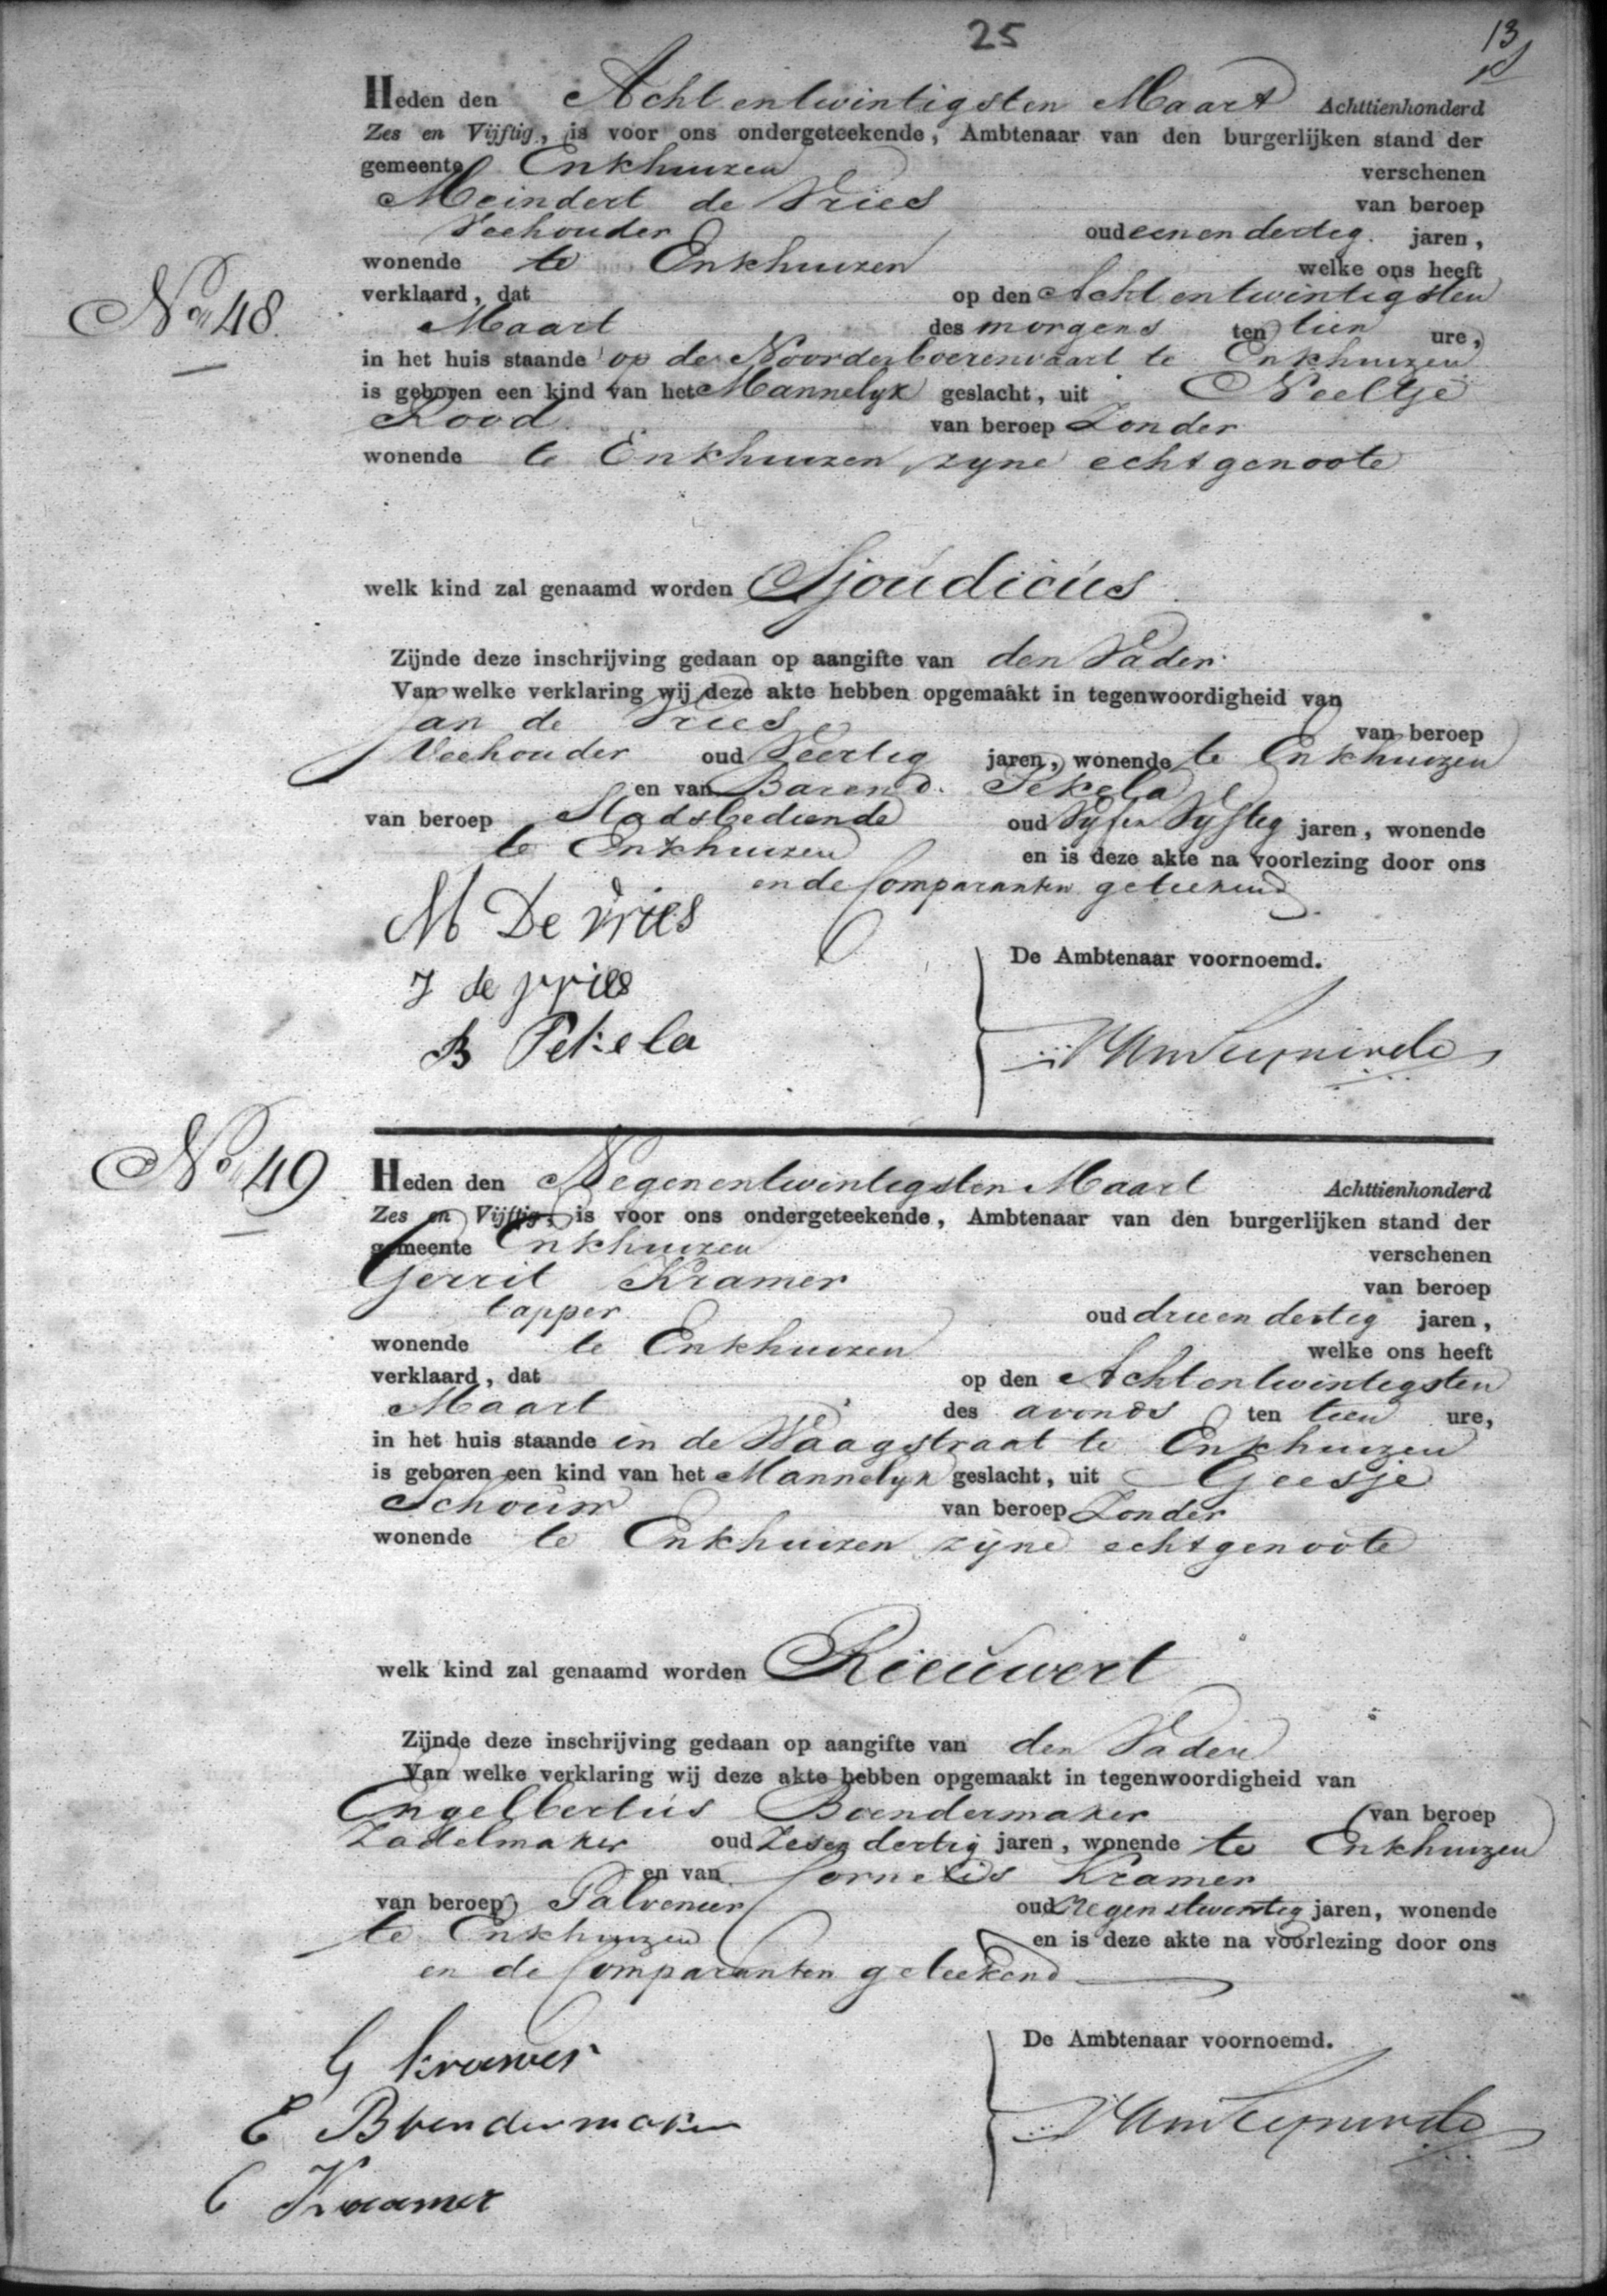 25
13
Heden den Acht entwintigsten Maart Achttienhonderd
Zes en Vijftig, is voor ons ondergeteekende, Ambtenaar van den burgerlijken stand der
gemeente Enkhuizen verschenen
Meindert de Vries van beroep
Veehouder oud een en dertig jaren,
wonende te Enkhuizen welke ons heeft
verklaard, dat op den Acht entwintigsten
No 48.
Maart des morgens ten tien ure,
in het huis staande op de Noorderboerenvaart te Enkhuizen
is geboren een kind van het Mannelyk geslacht, uit Neeltje
Rood van beroep Zonder
wonende te Enkhuizen zyne echtgenoote
welk kind zal genaamd worden Sjoudicus
Zijnde deze inschrijving gedaan op aangifte van den Vader
Van welke verklaring wij deze akte hebben opgemaakt in tegenwoordigheid van
Jan de Vries van beroep
Veehouder oud Veertig jaren, wonende te Enkhuizen
en van Barend Pekela
van beroep Stadsbediende oud Vyf en Vyftig jaren, wonende
te Enkhuizen en is deze akte na voorlezing door ons
en de Comparanten geteekend
M De Vries
J de Vries
B Pekela
De Ambtenaar voornoemd.
No 49
Heden den Negenentwintigsten Maart Achttienhonderd
Zes en Vijftig, is voor ons ondergeteekende, Ambtenaar van den burgerlijken stand der
gemeente Enkhuizen verschenen
Gerrit Kramer van beroep
tapper oud drie en dertig jaren,
wonende te Enkhuizen welke ons heeft
verklaard, dat op den Acht entwintigsten
Maart des avonds ten tien ure,
in het huis staande in de Waagstraat te Enkhuizen
is geboren een kind van het Mannelyk geslacht, uit Geesje
Schouw van beroep Zonder
wonende te Enkhuizen zyne echtgenoote
welk kind zal genaamd worden Rieuwert
Zijnde deze inschrijving gedaan op aangifte van den Vader
Van welke verklaring wij deze akte hebben opgemaakt in tegenwoordigheid van
Engelbertus Boendermaker van beroep
Zadelmaker oud Zes en dertig jaren, wonende te Enkhuizen
en van Cornelis Kramer
van beroep oud Negen en twentig jaren, wonende
te Enkhuizen en is deze akte na voorlezing door ons
en de Comparanten geteekend
G Kramer
E Boendermaker
C Kraamer
De Ambtenaar voornoemd.